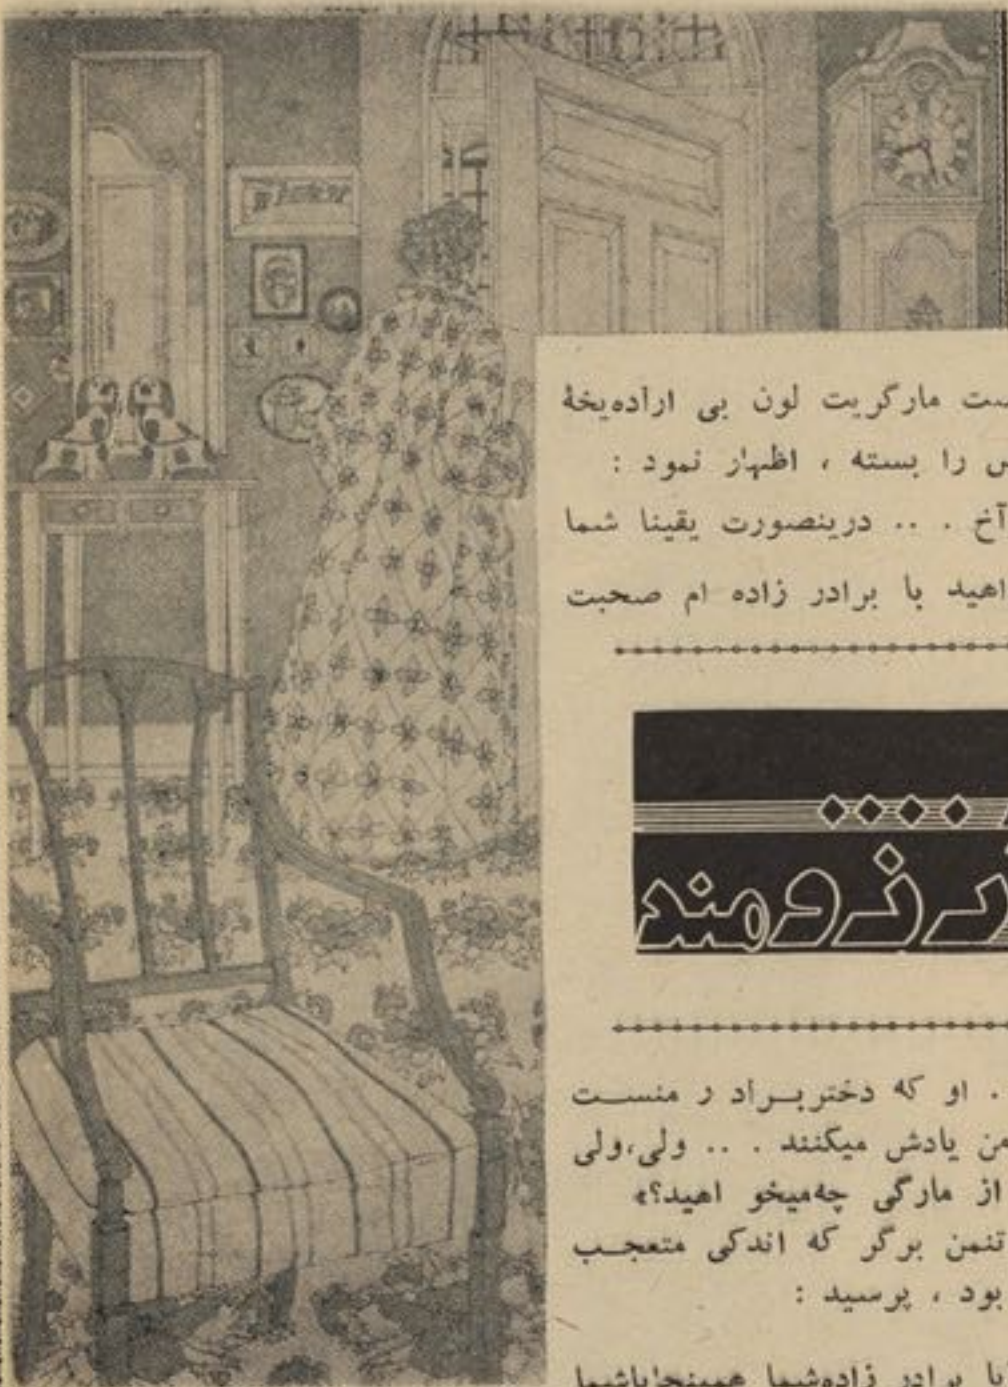 مارگریت لون بی ارادهیخهٔ
را بسته ، اظهار نمود :
آخ . .. درینصورت یقینا شما
اهید با برادر زاده ام صحبت
. او که دختربـراد ر منســت
من یادش میکنند . .. ولی،ولی
از مارگی چه‌میخو اهید؟»
تنمن برگر که اندکی متعجـب
بود ، پرسید :
با برادر زاده‌شما همینجا‌باشما